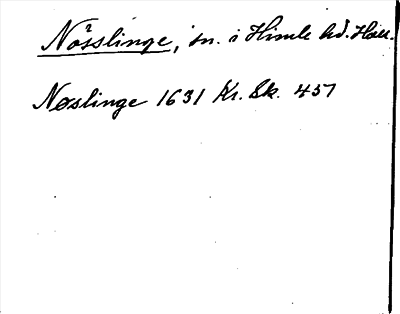 Nösslinge, sn. i Himle hd. Hall.
Nøslinge 1631 Kr. Sk. 457